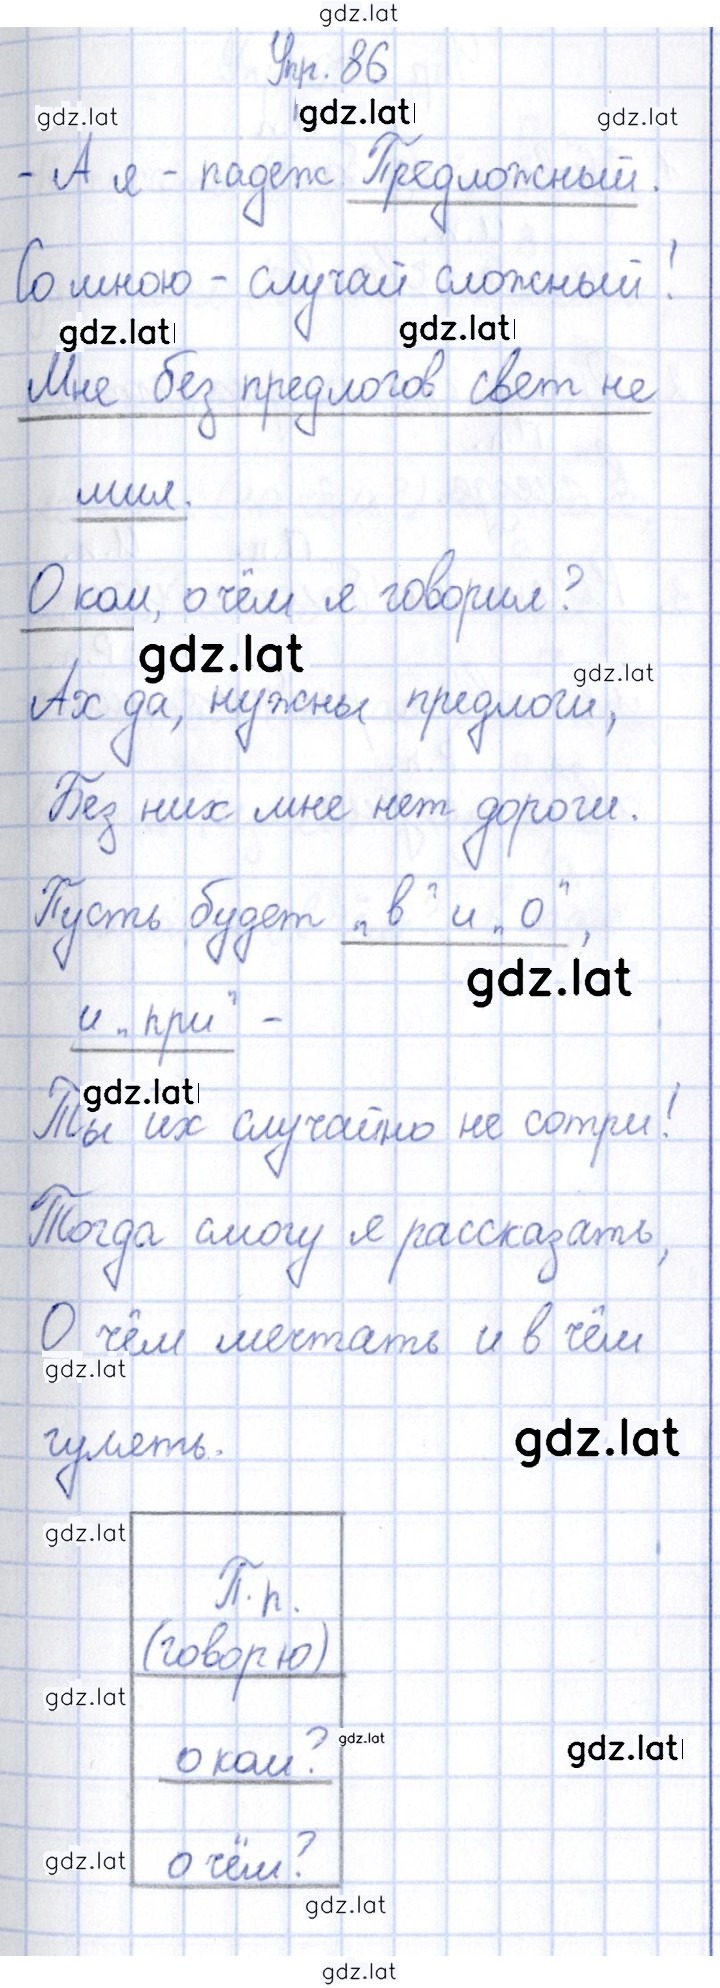 gdz.lat
Упр. 86
gdz.lat gdz.lat gdz.lat
- А я - падеж Предложный.
Со мною - случай сложный!
gdz.lat gdz.lat
Мне без предлогов свет не
мил.
О ком, о чём я говорил?
gdz.lat gdz.lat
Ах да, нужны предлоги,
Без них мне нет дороги.
Пусть будет „в" и „о",
gdz.lat
и „при" -
gdz.lat
Ты их случайно не сотри!
Тогда смогу я рассказать,
О чём мечтать и в чём
gdz.lat
гулять.
gdz.lat
gdz.lat
П. п.
(говорю)
gdz.lat
gdz.lat
о ком?
gdz.lat
gdz.lat
о чём?
gdz.lat
gdz.lat